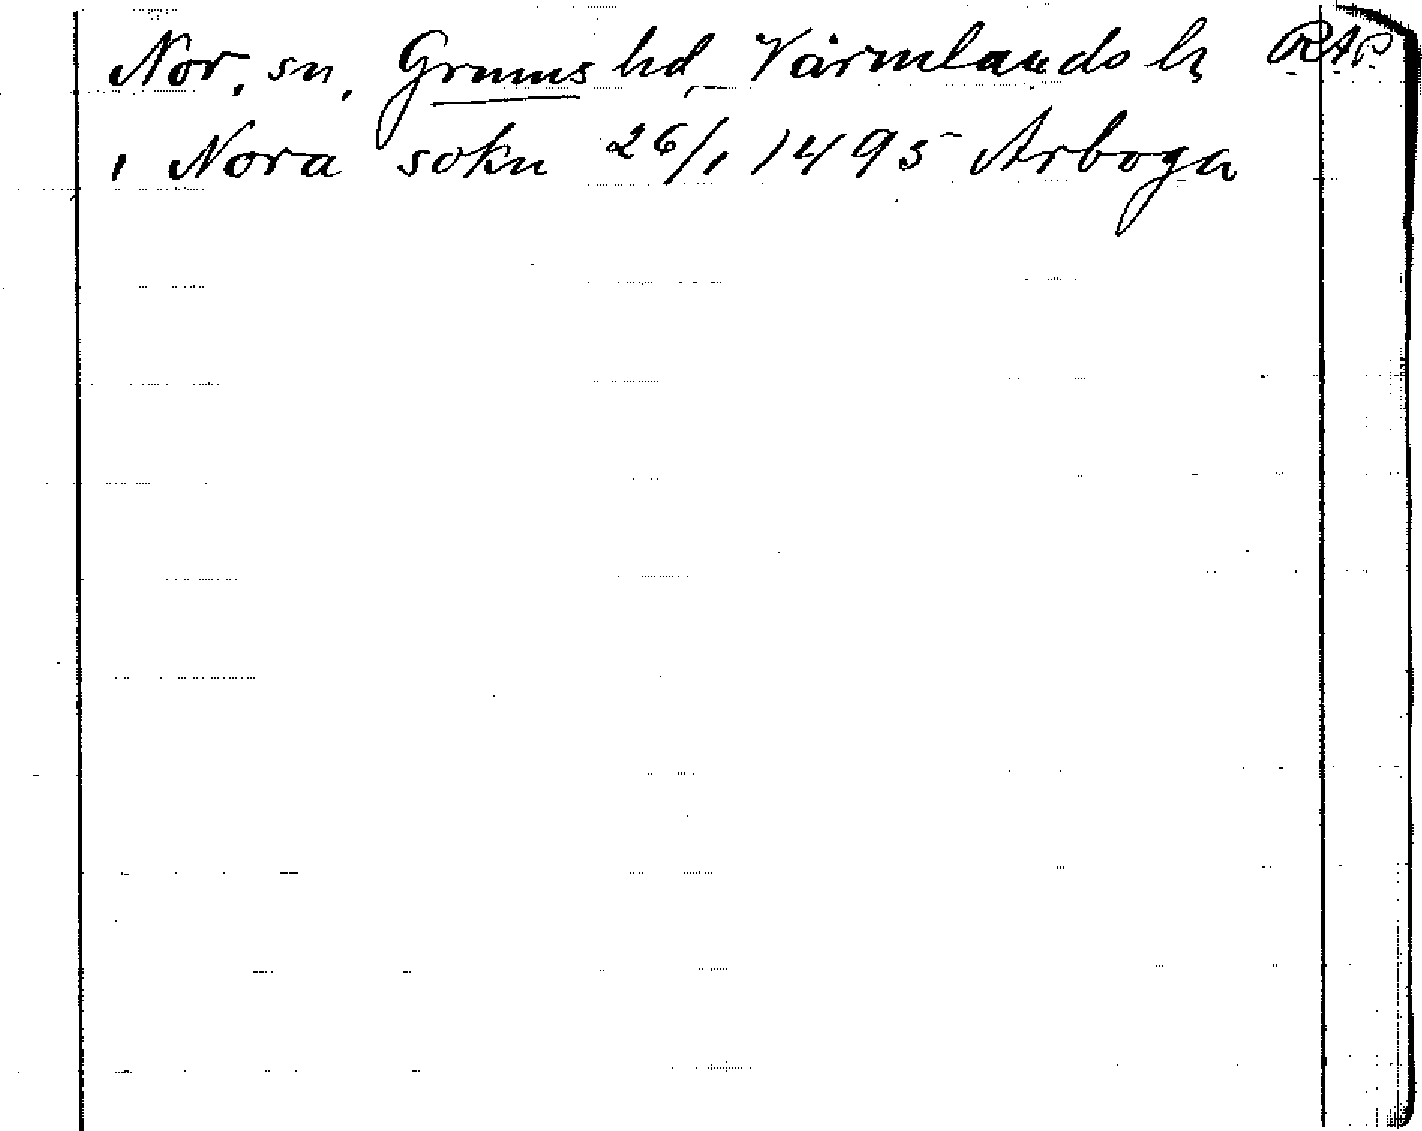 Nor, sn, Grums hd, Värmlands l. RAP
i Nora sokn 26/1 1495 Arboga